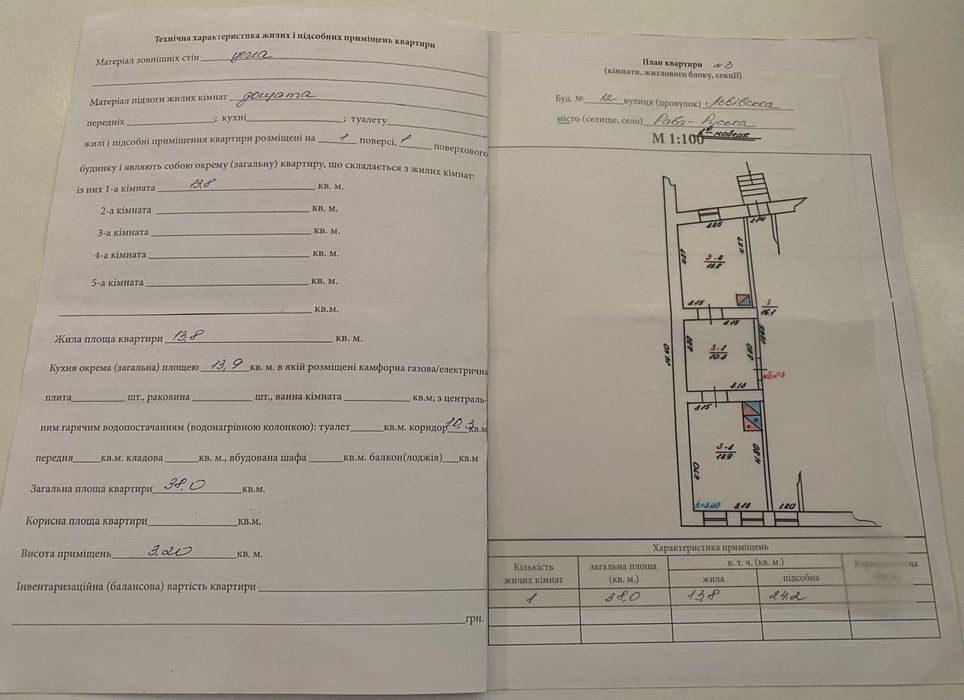 Технічна характеристика жилих і підсобних приміщень квартири
Матеріал зовнішніх стін цегла
Матеріал підлоги жилих кімнат дощата
передніх ; кухні ; туалету
жилі і підсобні приміщення квартири розміщені на 1 поверсі, 1 поверхового
будинку і являють собою окрему (загальну) квартиру, що складається з жилих кімнат:
із них 1-а кімната 13,8 кв. м.
2-а кімната кв. м.
3-а кімната кв. м.
4-а кімната кв. м.
5-а кімната кв. м.
кв.м.
Жила площа квартири 13,8 кв. м.
Кухня окрема (загальна) площею 13,9 кв. м. в якій розміщені камфорна газова/електрична
плита шт., раковина шт., ванна кімната кв.м; з централь-
ним гарячим водопостачанням (водонагрівною колонкою): туалет кв.м. коридор 10,3 кв.м
передня кв.м. кладова кв. м., вбудована шафа кв.м. балкон(лоджія) кв.м
Загальна площа квартири 38,0 кв.м.
Корисна площа квартири кв.м.
Висота приміщень 3.20 кв. м.
Інвентаризаційна (балансова) вартість квартири
грн.
План квартири №3
(кімнати, житлового блоку, секції)
Буд. № 12 вулиця (провулок) Львівська
місто (селище, село) Рава-Руська
М 1:100 поверх
2.25 1.24
4.27 4.57
13.8
3.15 I
16.1
3.15
3.22 3-1
10.3 3.20
14.40
3.13
3.15
13.9
4.70 4.80
3.13 1.20
Характеристика приміщень
Кількість жилих кімнат загальна площа (кв. м.) в. т. ч. (кв. м.)
жила підсобна
1 38,0 13,8 24.2